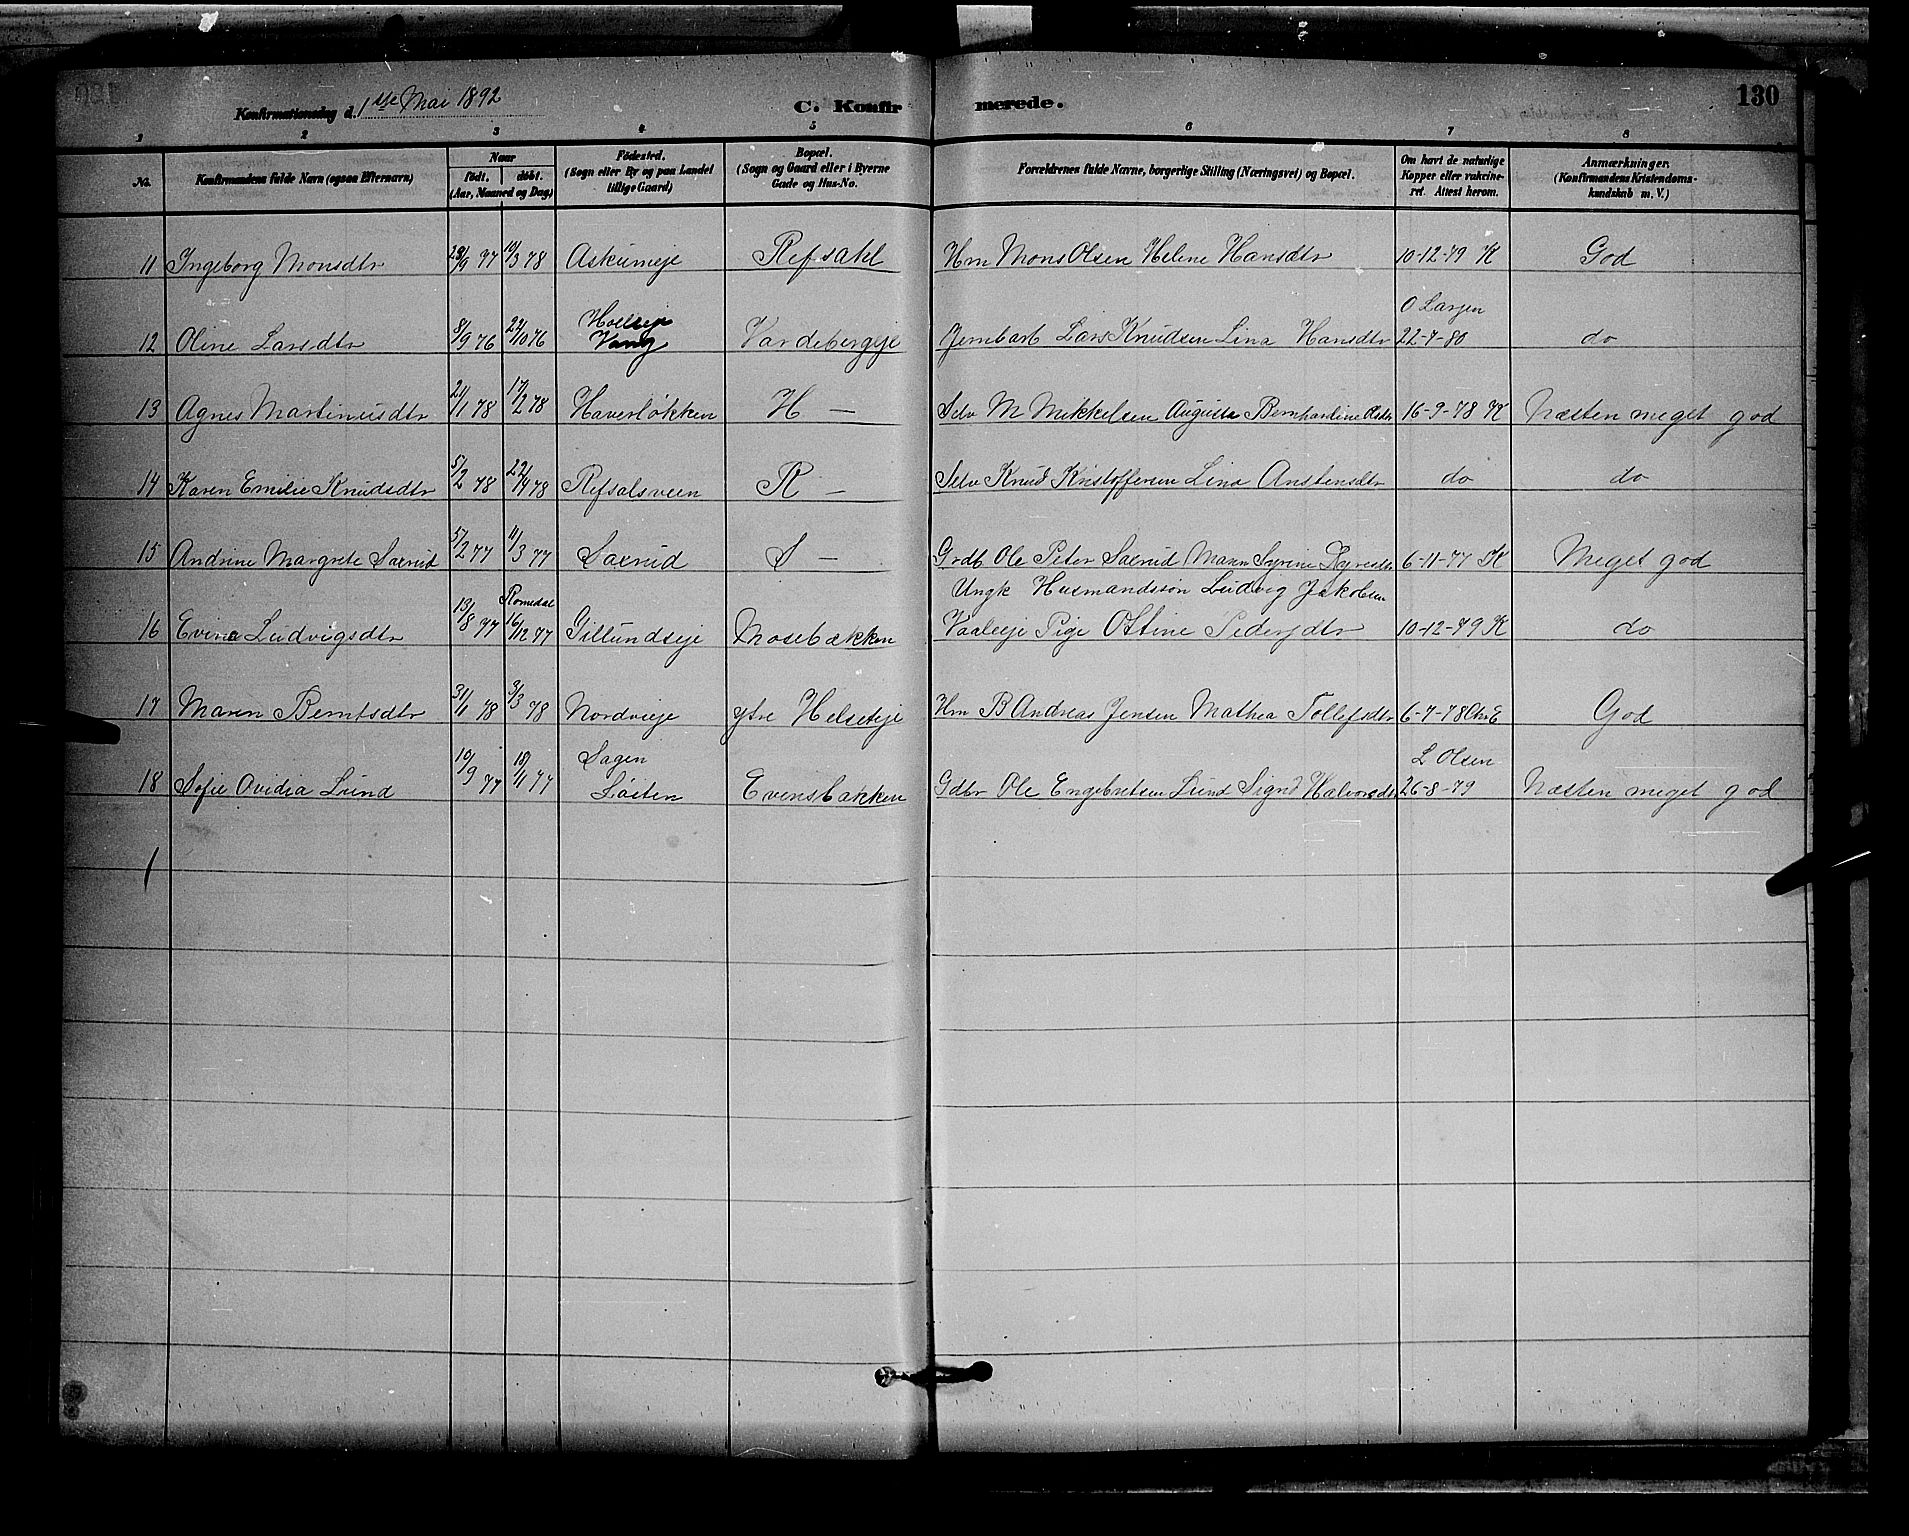 Konfirmationsdag d. 1ste Mai 1892 C. Konfirmerede. 130
1 2 3 4 5 6 7 8
No. Konfirmandens fulde Navn (ogsaa Efternavn) Naar født. døbt. (Aar, Maaned og Dag) Fødested. (Sogn eller By og paa Landet tillige Gaard) Bopæl. (Sogn og Gaard eller i Byerne Gade og Hus-No. Forældrenes fulde Navne, borgerlige Stilling (Næringsvei) og Bopæl. Om havt de naturlige Kopper eller vakcineret. Attest herom. Anmærkninger. (Konfirmandens Kristendomskundskab m. V.)
11 Ingeborg Monsdtr 28/9 77 19/3 78 Askumeje Refsahl Hm Mons Olsen Helene Hansdtr 10-12-79 K God
12 Oline Larsdtr 8/9 76 22/10 76 Vang Vardebergeje Jernbarb Lars Knudsen Lina Hansdtr O Larsen 22-7-80 do
13 Agnes Martinusdtr 21/1 78 17/2 78 Haverløkken H — Selv M Mikkelsen Augusta Bernhardine Olsdtr 16-9-78 K Næsten meget god
14 Karen Emilie Knudsdtr 5/2 78 22/4 78 Refsalsveen R — Selv Knud Kristoffersen Lina Anstensdtr do do
15 Andrine Margrete Saxrud 5/2 77 11/3 77 Saxrud S — Grdb Ole Peter Saxrud Maren Syrine 6-11-77 K Meget god
16 Evina Ludvigsdtr 13/8 77 Romedal 16/12 77 Gillundseje Mosebækken Ungk Husmandssøn Ludvig Jakobsen Vaaleeje Pige Ottine Pedersdtr 10-12-79 K do
17 Maren Berntsdtr 31/1 78 3/3 78 Nordvieje ytre Helseteje Hm B Andreas Jensen Mathea Tollefsdtr 6-7-78 Chr E God
18 Sofie Ovidia Lund 19/9 77 18/11 77 Sagen Løiten Evensbakken Gdbr Ole Engebretsen Lund Signe Halvorsdtr L Olsen 26-8-79 Næsten meget god